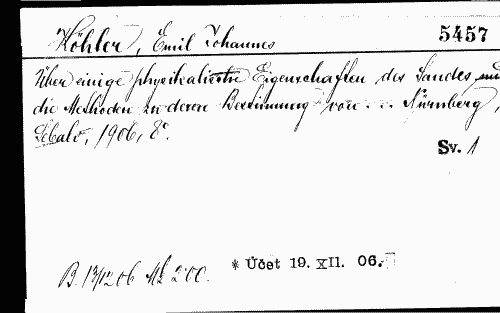 Köhler, Emil Johannes 5457
Über einige physikalische Eigenschaften des Sandes und
die Methoden zu deren Bestimmung von ... Nürnberg,
Sebald, 1906, 8°.
Sv. 1
B. 13/12 06 Mk 2.00. * Účet 19. XII. 06.